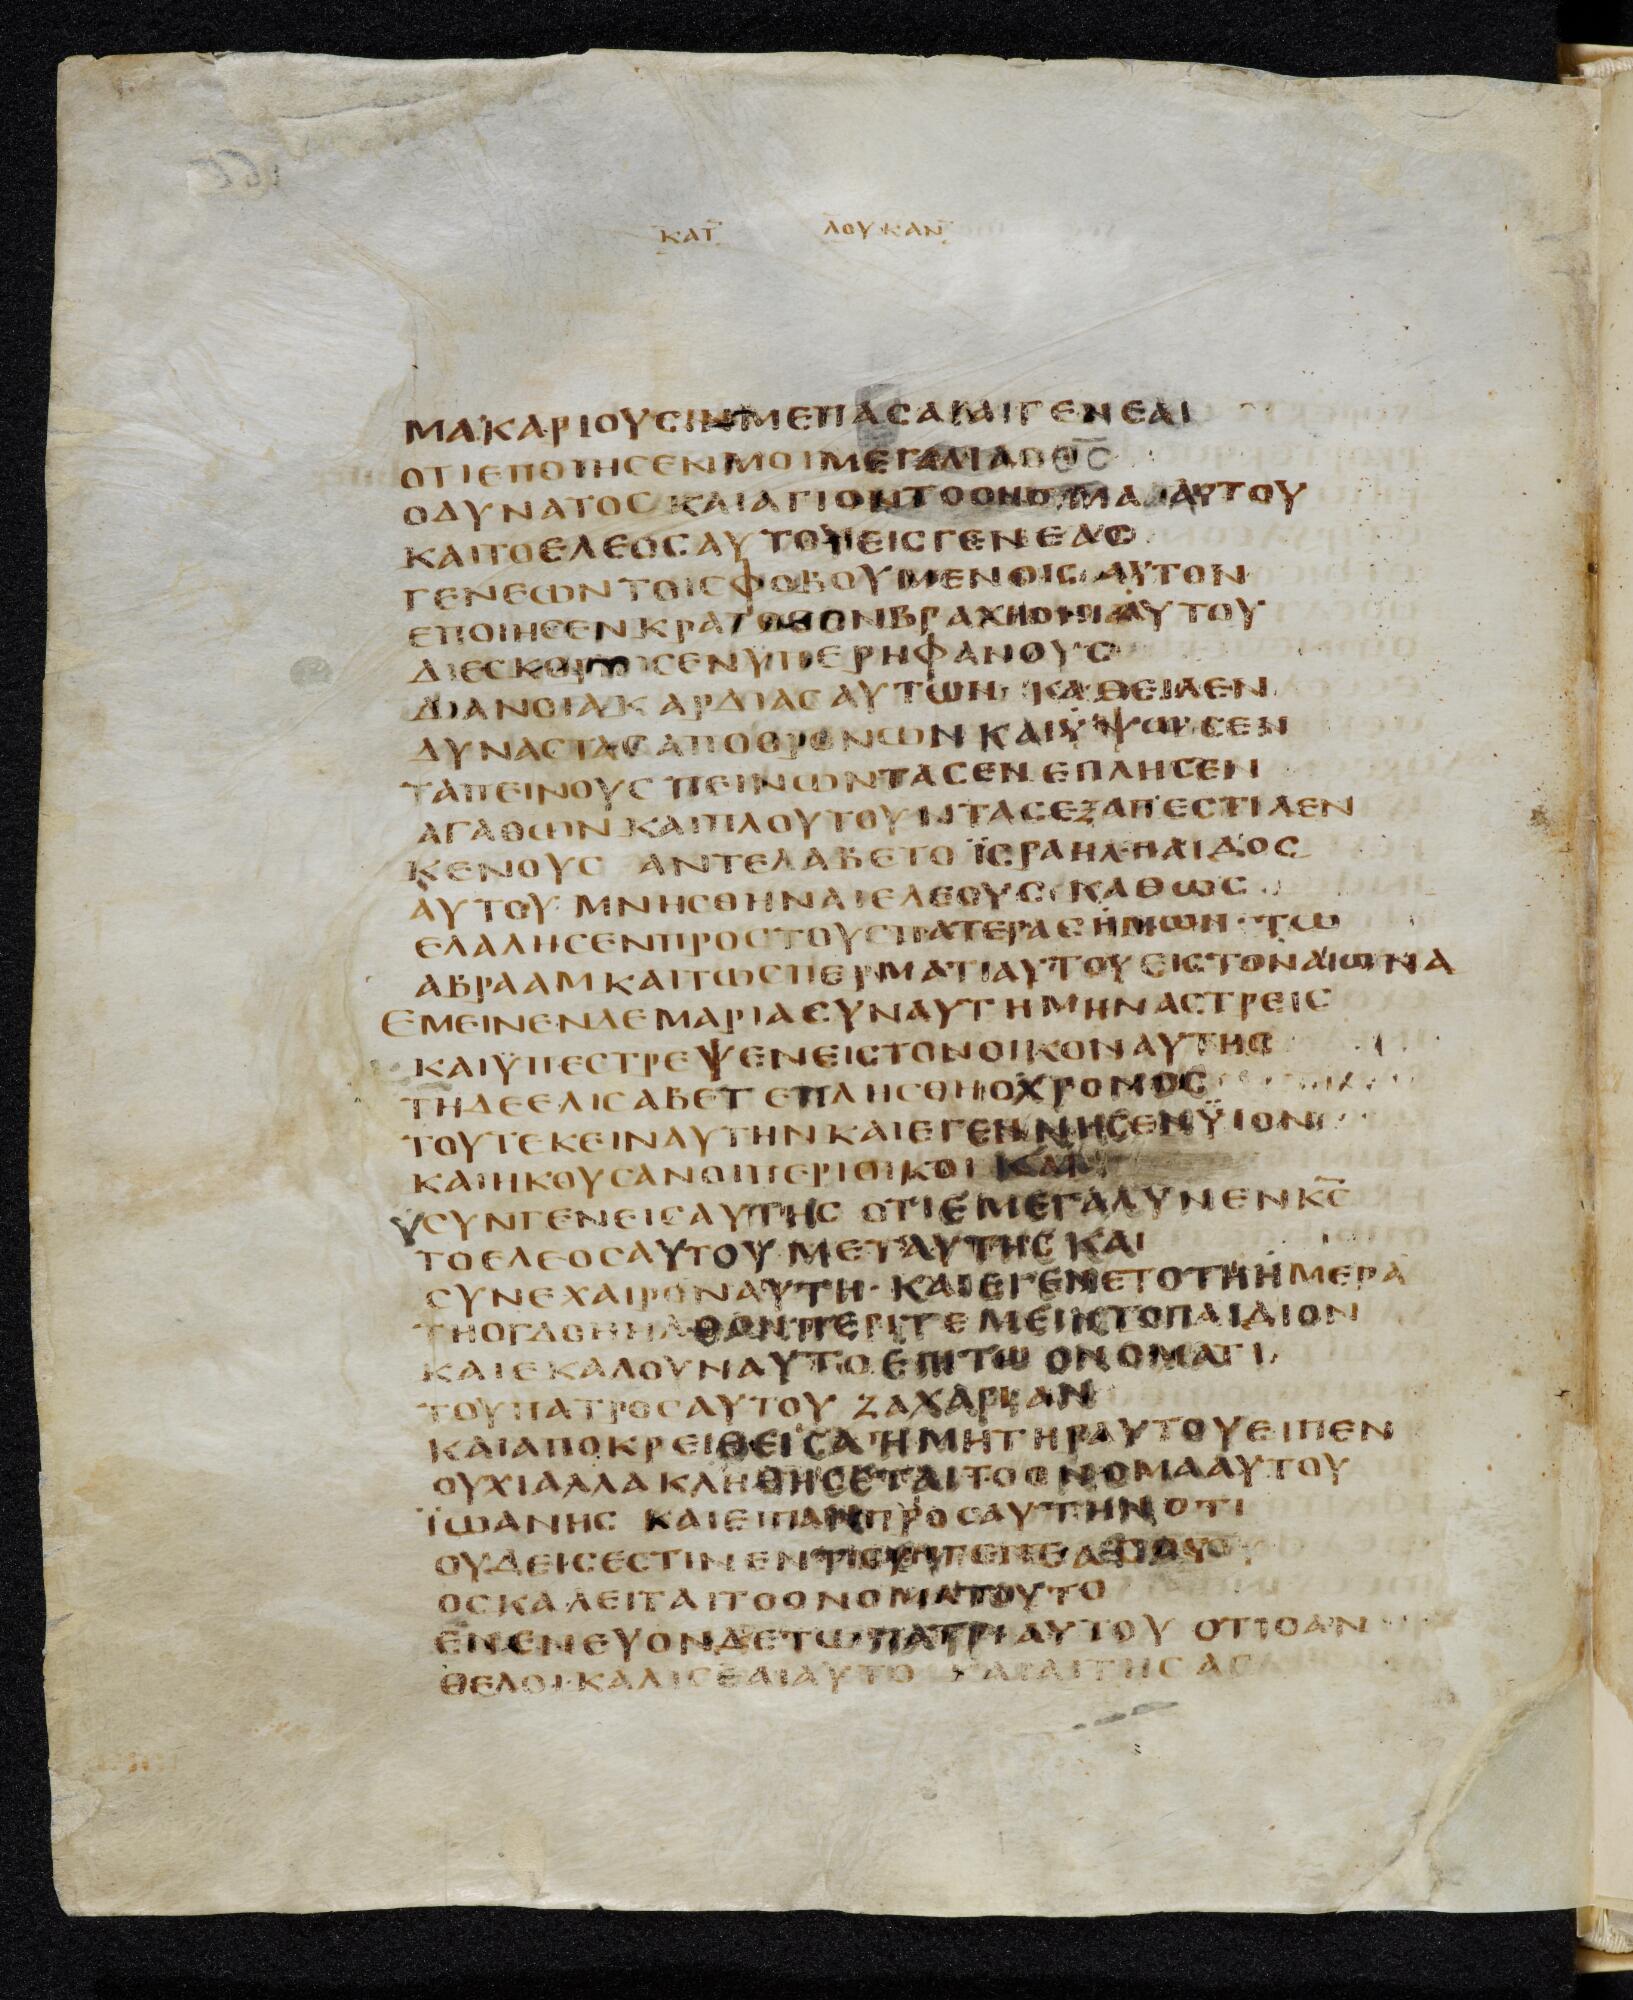 ΚΑΤ ΛΟΥΚΑΝ
ΜΑΚΑΡΙΟΥϹΙΝΜΕΠΑϹΑΙΑΙΓΕΝΕΑΙ
ΟΤΙΕΠΟΙΗϹΕΝΜΟΙΜΕΓΑΛΙΑΟΘ̅Ϲ̅
ΟΔΥΝΑΤΟϹΚΑΙΑΓΙΟΝΤΟΟΝΟΜΑΑΥΤΟΥ
ΚΑΙΤΟΕΛΕΟϹΑΥΤΟΥΕΙϹΓΕΝΕΑϹ
ΓΕΝΕΩΝΤΟΙϹΦΟΒΟΥΜΕΝΟΙϹΑΥΤΟΝ
ΕΠΟΙΗϹΕΝΚΡΑΤΟϹΕΝΒΡΑΧΙΟΝΙΑΥΤΟΥ
ΔΙΕϹΚΟΡΠΙϹΕΝΥΠΕΡΗΦΑΝΟΥϹ
ΔΙΑΝΟΙΑΚΑΡΔΙΑϹΑΥΤΩΝ ΚΑΘΕΙΛΕΝ
ΔΥΝΑϹΤΑϹΑΠΟΘΡΟΝΩΝΚΑΙΫΨΩϹΕΝ
ΤΑΠΕΙΝΟΥϹ ΠΕΙΝΩΝΤΑϹΕΝΕΠΛΗϹΕΝ
ΑΓΑΘΩΝΚΑΙΠΛΟΥΤΟΥΝΤΑϹΕΞΑΠΕϹΤΙΛΕΝ
ΚΕΝΟΥϹ ΑΝΤΕΛΑΒΕΤΟΪϹΡΑΗΛΠΑΙΔΟϹ
ΑΥΤΟΥ ΜΝΗϹΘΗΝΑΙΕΛΕΟΥϹ ΚΑΘΩϹ
ΕΛΑΛΗϹΕΝΠΡΟϹΤΟΥϹΠΑΤΕΡΑϹΗΜΩΝ ΤΩ
ΑΒΡΑΑΜΚΑΙΤΩϹΠΕΡΜΑΤΙΑΥΤΟΥΕΙϹΤΟΝΑΙΩΝΑ
ΕΜΕΙΝΕΝΔΕΜΑΡΙΑϹΥΝΑΥΤΗΜΗΝΑϹΤΡΕΙϹ
ΚΑΙΫΠΕϹΤΡΕΨΕΝΕΙϹΤΟΝΟΙΚΟΝΑΥΤΗϹ
ΤΗΔΕΕΛΙϹΑΒΕΤΕΠΛΗϹΘΗΟΧΡΟΝΟϹ
ΤΟΥΤΕΚΕΙΝΑΥΤΗΝΚΑΙΕΓΕΝΝΗϹΕΝΫΙΟΝ
ΚΑΙΗΚΟΥϹΑΝΟΙΠΕΡΙΟΙΚΟΙ ΚΑΙ
ϹΥΝΓΕΝΕΙϹΑΥΤΗϹ ΟΤΙΕΜΕΓΑΛΥΝΕΝΚ̅Ϲ̅
ΤΟΕΛΕΟϹΑΥΤΟΥ ΜΕΤΑΥΤΗϹ ΚΑΙ
ϹΥΝΕΧΑΙΡΟΝΑΥΤΗ· ΚΑΙΕΓΕΝΕΤΟΤΗΗΜΕΡΑ
ΤΗΟΓΔΟΗΗΛΘΟΝΠΕΡΙΤΕΜΕΙΝΤΟΠΑΙΔΙΟΝ
ΚΑΙΕΚΑΛΟΥΝΑΥΤΟΕΠΙΤΩ ΟΝΟΜΑΤΙ
ΤΟΥΠΑΤΡΟϹΑΥΤΟΥ ΖΑΧΑΡΙΑΝ
ΚΑΙΑΠΟΚΡΕΙΘΕΙϹΑΗΜΗΤΗΡΑΥΤΟΥΕΙΠΕΝ
ΟΥΧΙΑΛΛΑΚΛΗΘΗϹΕΤΑΙΤΟΟΝΟΜΑΑΥΤΟΥ
ΪΩΑΝΗϹ ΚΑΙΕΙΠΑΝΠΡΟϹΑΥΤΗΝΟΤΙ
ΟΥΔΕΙϹΕϹΤΙΝΕΝ
ΟϹΚΑΛΕΙΤΑΙΤΟΟΝΟΜΑΤΟΥΤΟ
ΕΝΕΝΕΥΟΝΔΕΤΩΠΑΤΡΙΑΥΤΟΥ ΟΤΙΟΑΝ
ΘΕΛΟΙΚΑΛΙϹΕΑΙΑΥΤΟ ΚΑΙΑΙΤΗϹΑϹ